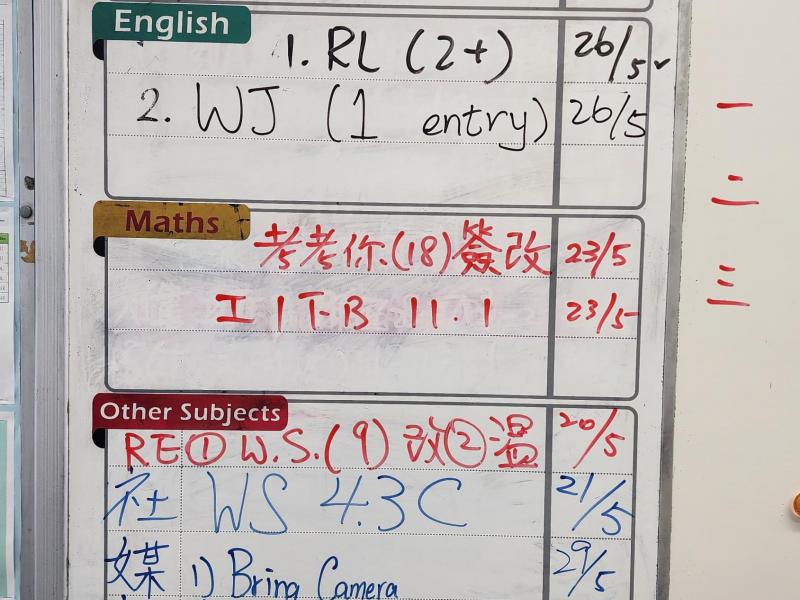 English
1. RL (2+) 26/5 ✓
2. WJ (1 entry) 26/5
Maths
考考你(18)簽改 23/5
工 IT-B 11.1 23/5
Other Subjects
RE ① W.S.(9) 改 ② 溫 26/5
社 WS 4.3C 21/5
媒 1) Bring Camera 29/5
一
二
三